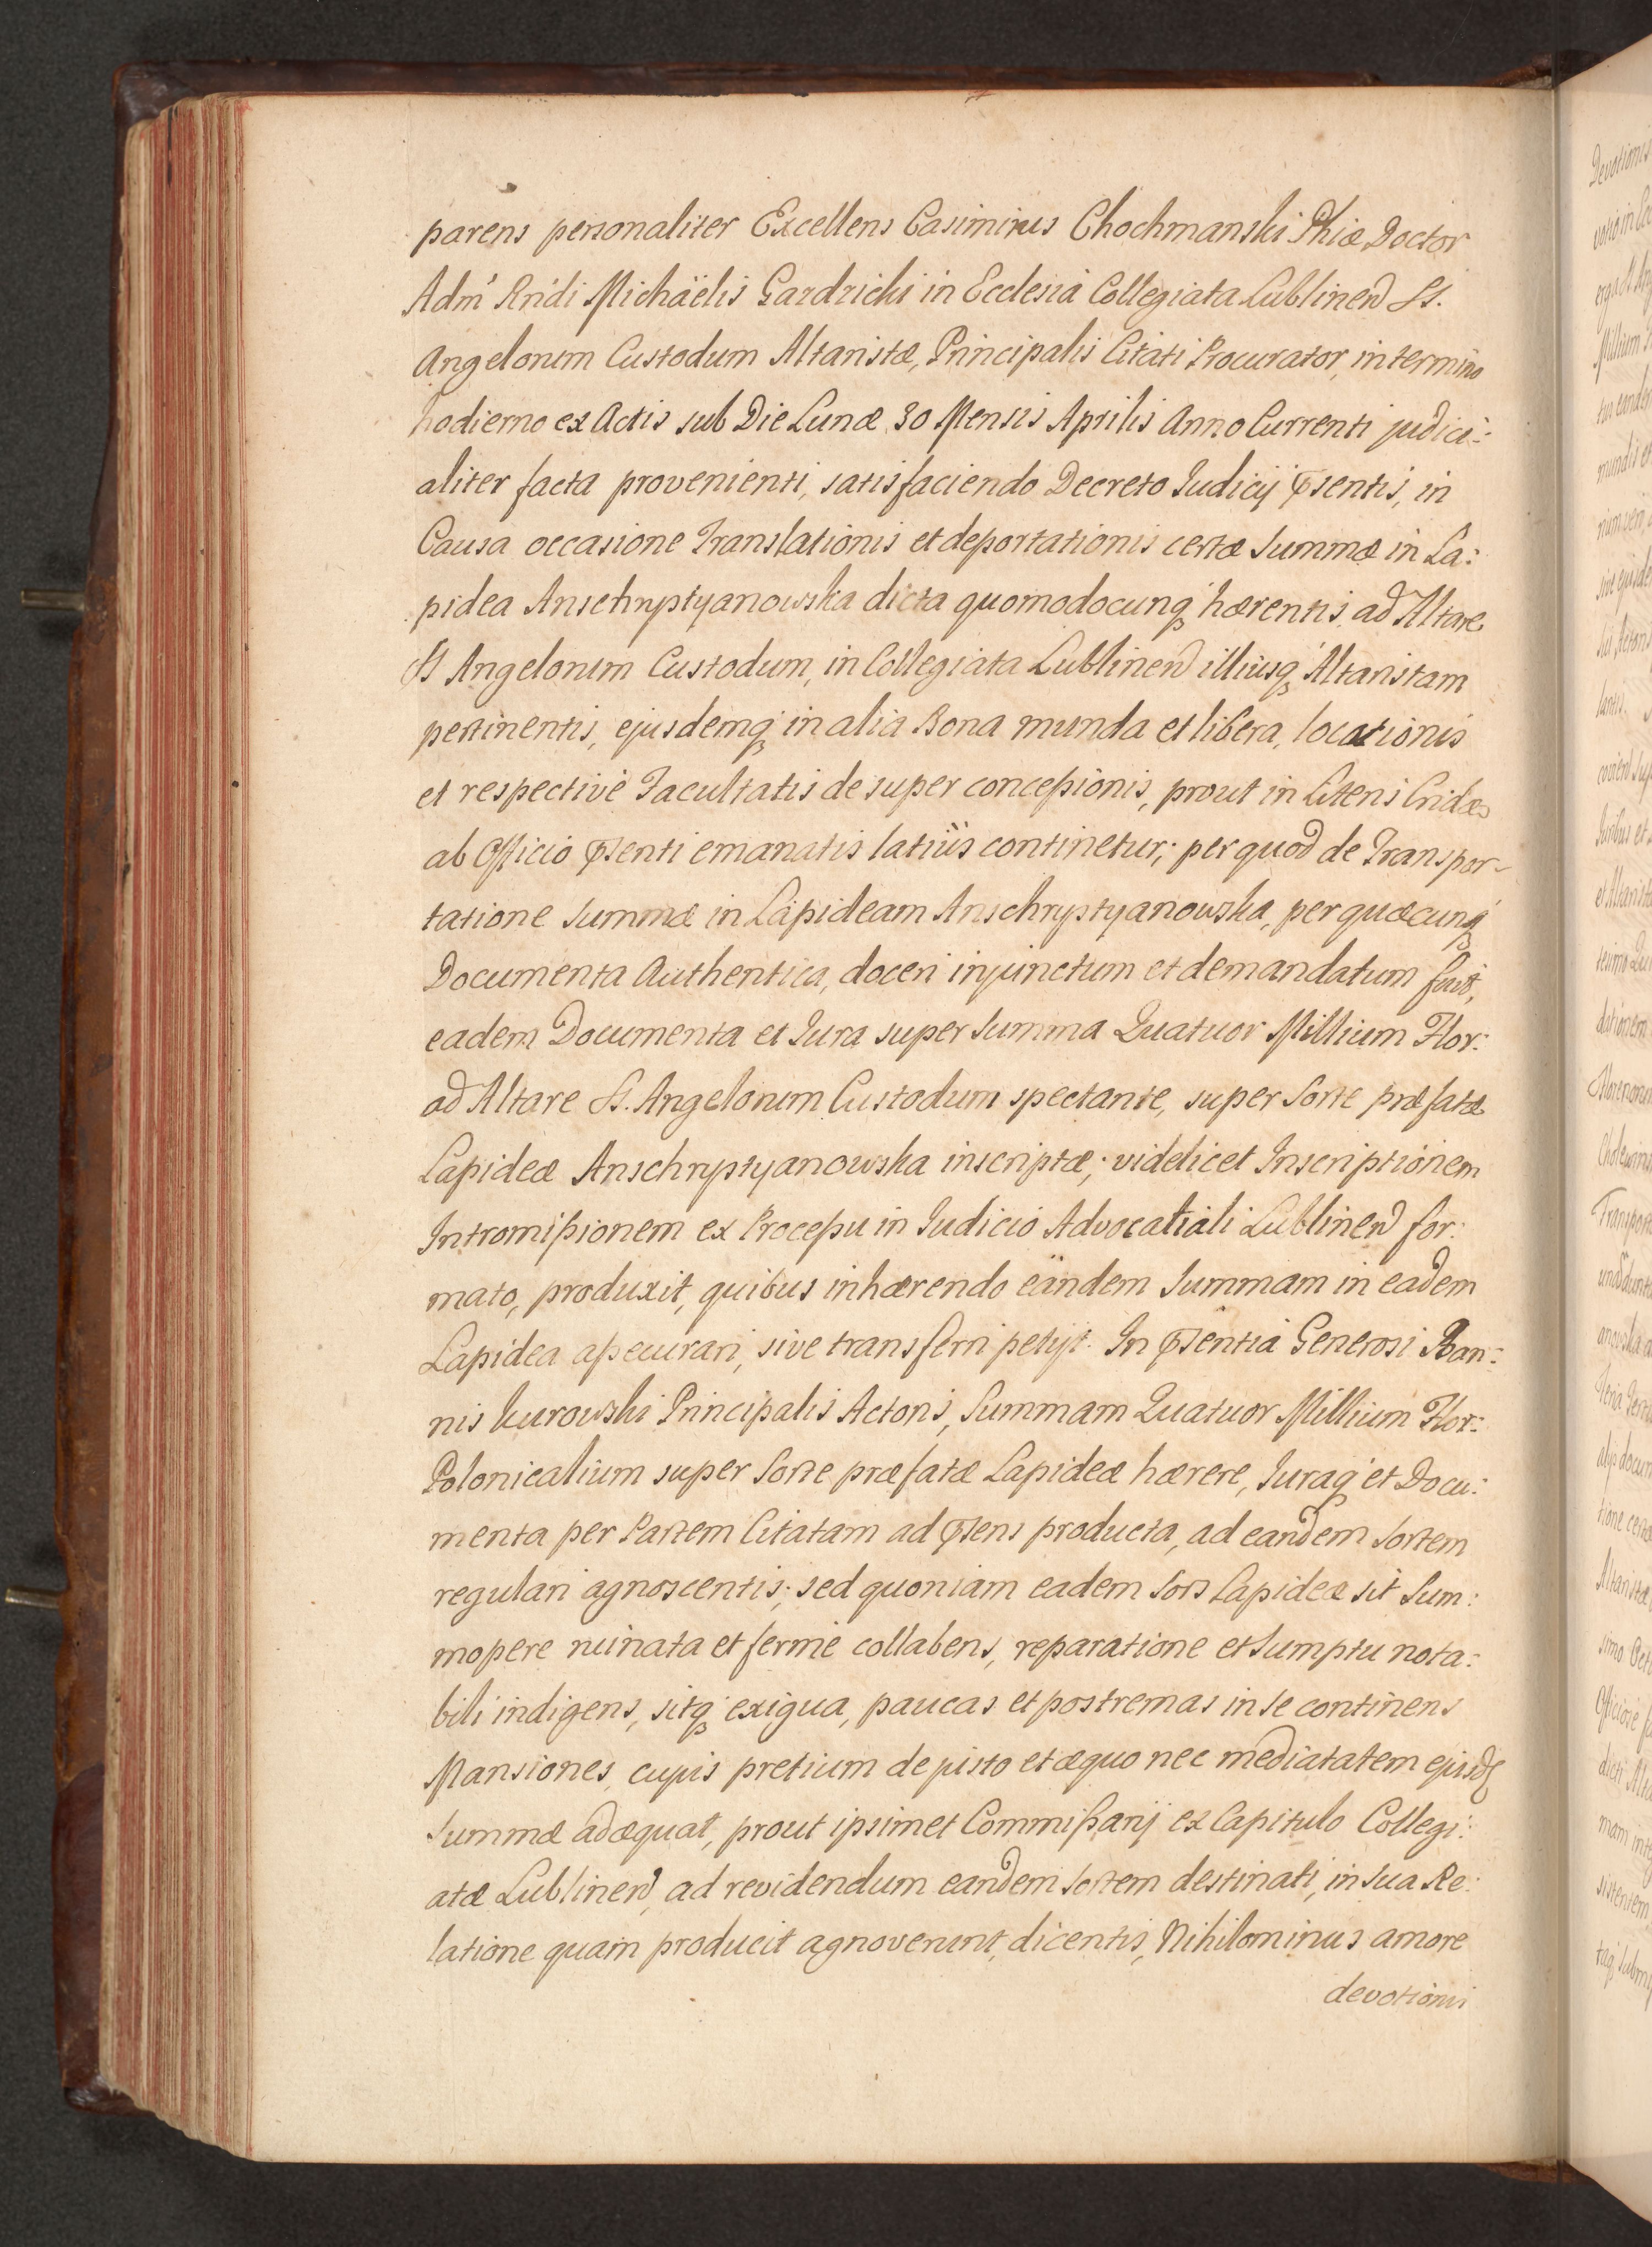 parens personaliter Excellens Casimirus Chochmanski Phiæ Doctor
Adm' Rn'di Michäelis Gardzicki in Ecclesia Collegiata Lublinen St.
Angelorum Custodum Altaristæ, Principalis Citati Procurator, in termino
hodierno ex Actis sub Die Lunæ 30 Mensis Aprilis Anno Currenti judici:
aliter facta provenienti, satisfaciendo Decreto Iudicij p̄senti, in
Causa occasione Translationis et deportationis certæ Summæ in La:
pidea Anschryptyanowska dicta quomodocunq hærentis, ad Altare
St Angelorum Custodum, in Collegiata Lublinen illiusq Altaristam
pertinentis, ejusdemq in alia Bona munda et libera, locationis
et respectivè Facultatis desuper conceßionis, prout in Literis Cridæ
ab Officio p̄senti emanatis latiùs continetur; per quod de Transpor-
tatione Summæ in Lapideam Anschryptyanowska, per quæcunq
Documenta Authentica, doceri injunctum et demandatum fuit,
eadem Documenta et Iura super Summa Quatuor Millium Flor:
ad Altare St. Angelorum Custodum spectante, super Sorte præfatæ
Lapideæ Anschryptyanowska inscriptæ; videlicet Inscriptionem
Intromißionem ex Proceßu in Iudicio Advocatiali Lublinen for:
mato, produxit, quibus inhærendo eandem Summam in eadem
Lapidea aßecurari, sive transferri petijt. In p̄sentia Generosi Ioan:
nis Kurowski Principalis Actoris, Summam Quatuor Millium Flor:
Polonicalium super Sorte præfatæ Lapideæ hærere, Iuraq et Docu:
menta per Partem Citatam ad p̄sens producta, ad eandem Sortem
regulari agnoscentis; sed quoniam eadem Sors Lapideæ sit Sum:
mopere ruinata et fermè collabens, reparatione et Sumptu nota:
bili indigens, sitq exigua, paucas et postremas in se continens
Mansiones, cujus pretium de justo et æquo nec mediatatem ejusd
Summæ adæquat, prout ipsimet Commißarij ex Capitulo Collegi:
atæ Lublinen, ad revidendum eandem Sortem destinati, in Sua Re:
latione quam producit agnoverunt, dicentis, Nihilominus amore
devotionis